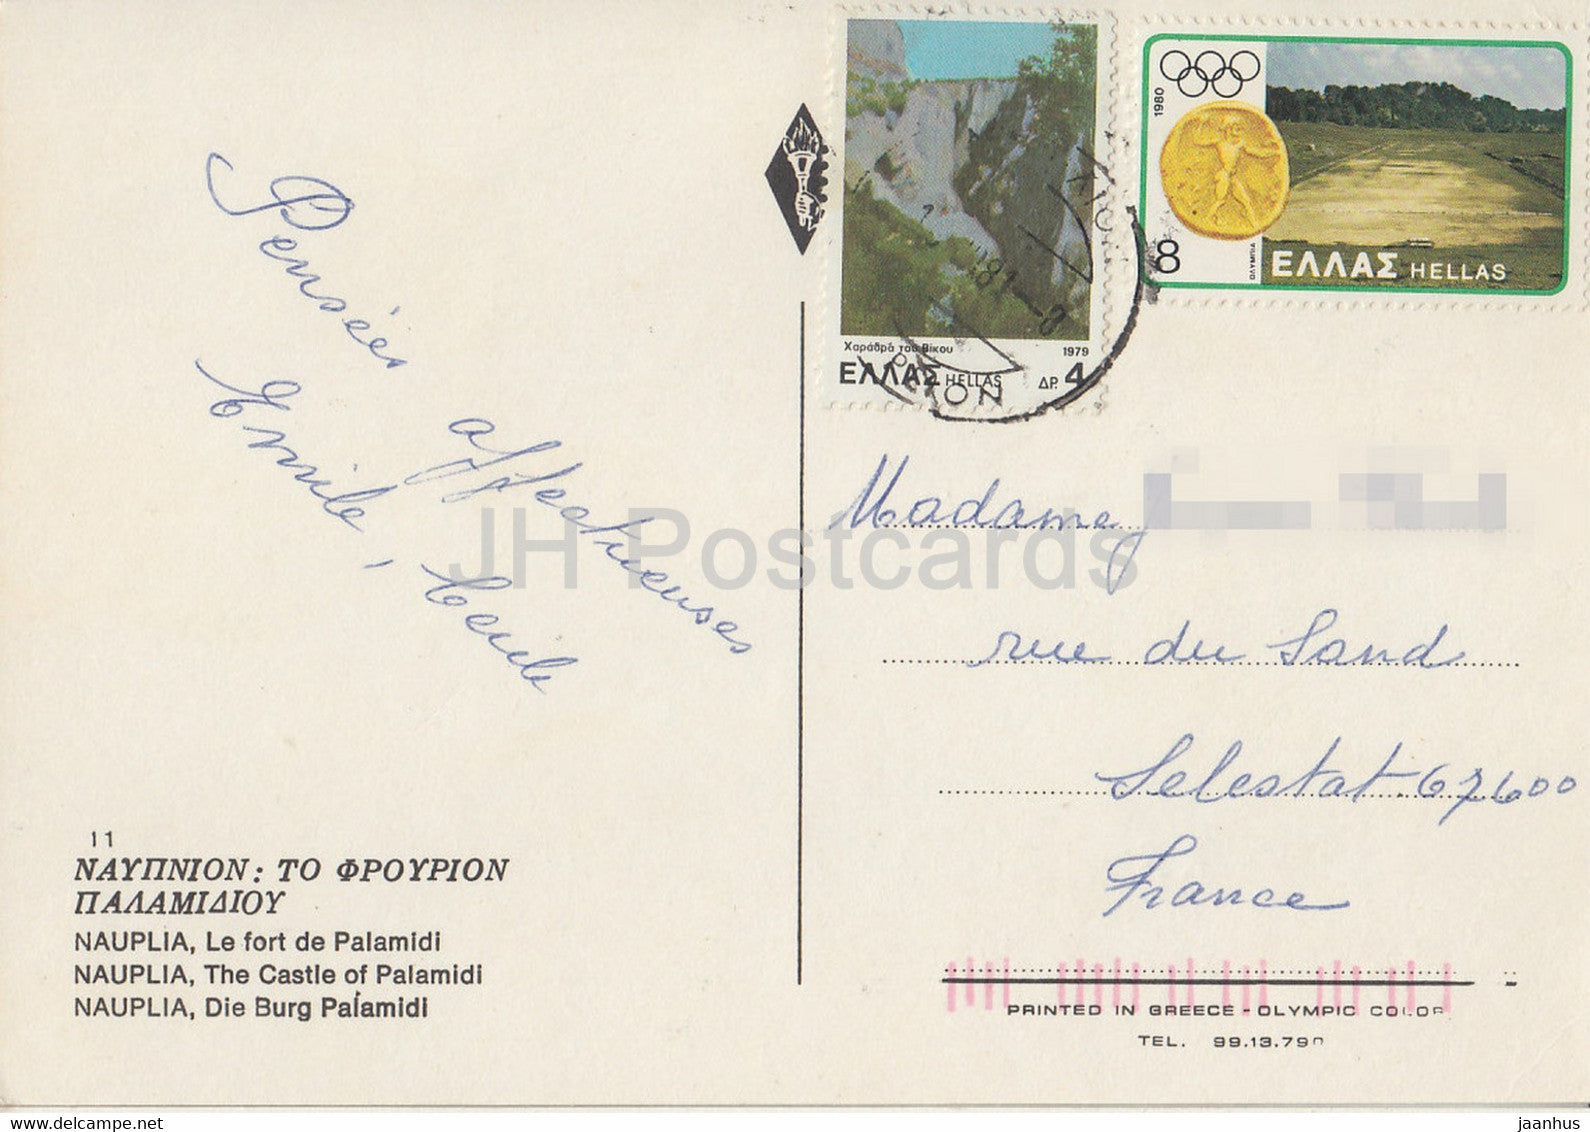 Pensées
affectueuses
Emile, Cecile
11
ΝΑΥΠΝΙΟΝ: ΤΟ ΦΡΟΥΡΙΟΝ
ΠΑΛΑΜΙΔΙΟΥ
NAUPLIA, Le fort de Palamidi
NAUPLIA, The Castle of Palamidi
NAUPLIA, Die Burg Palamidi
Χαράδρα του Βίκου 1979
ΕΛΛΑΣ HELLAS ΔΡ. 4
1980
8
ΟΛΥΜΠΙΑ
ΕΛΛΑΣ HELLAS
81-8
Madame
rue du Sand
Selestat. 67600
France
PRINTED IN GREECE - OLYMPIC COLOR
TEL. 99.13.790
JH Postcards
www.delcampe.net
jaanhus